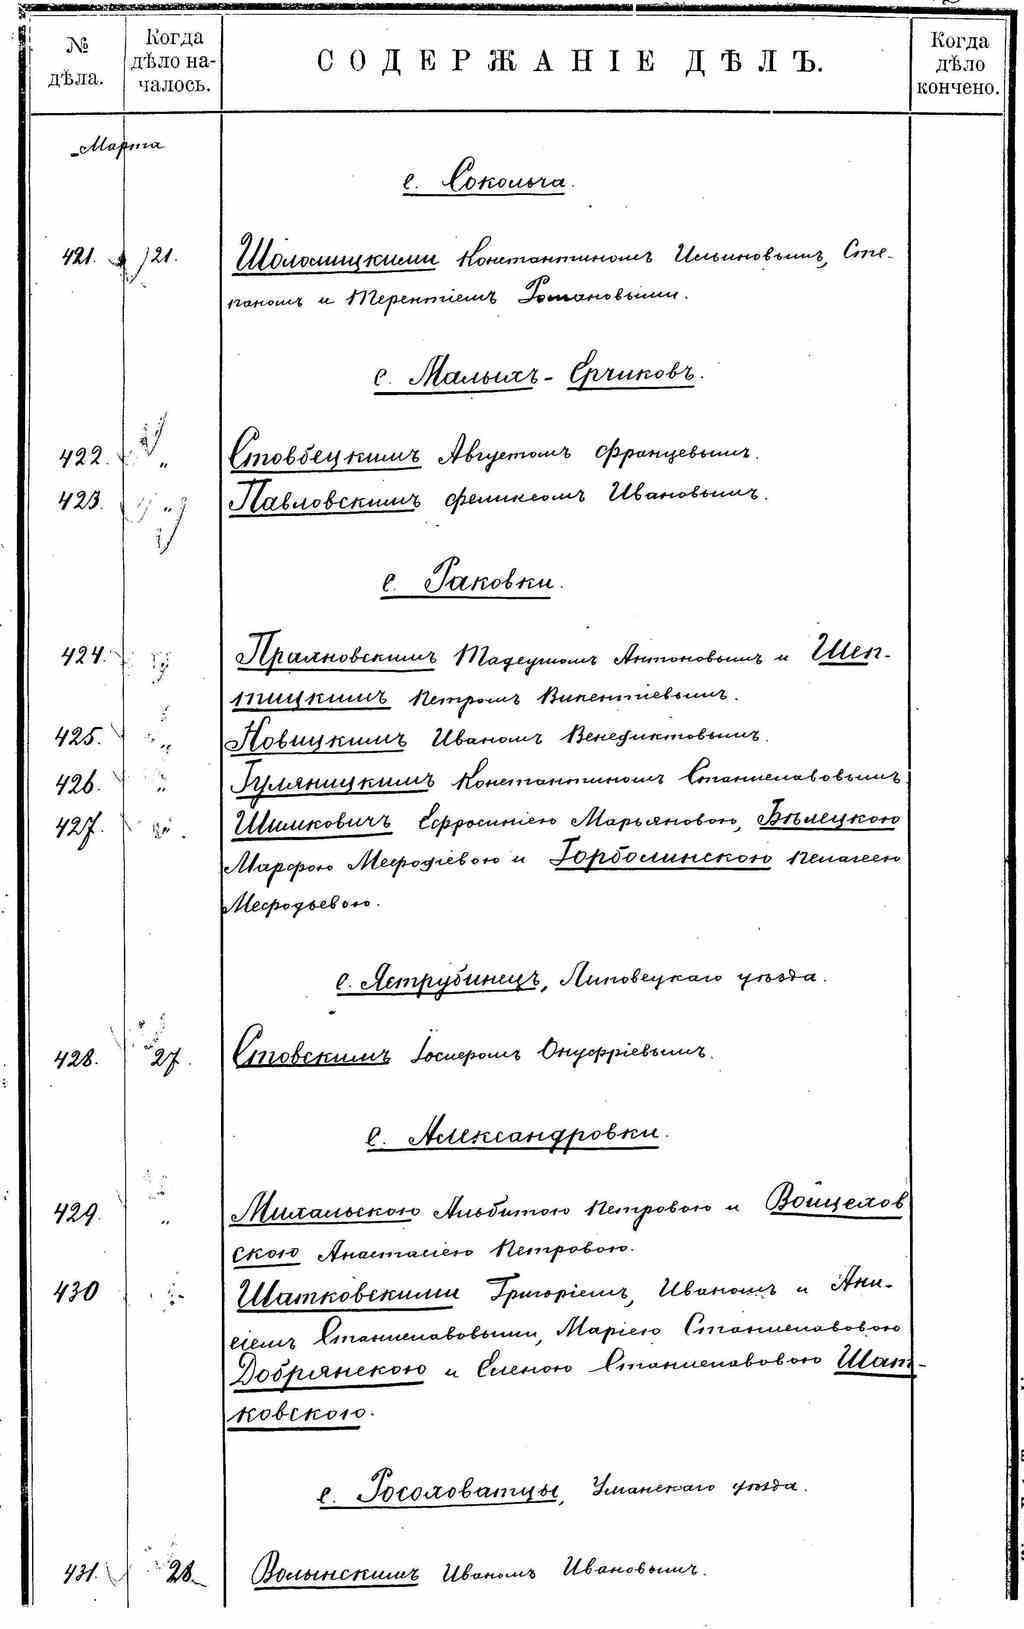 № дѣла.
Когда дѣло началось.
СОДЕРЖАНІЕ ДѢЛЪ.
Когда дѣло кончено.
Марта
с. Сокольча.
421. 21. Шоломицкими Константиномъ Ильиновымъ, Сте-
паномъ и Терентіемъ Романовыми.
с. Малыхъ-Ерчиковъ.
422. „ Стовбецкимъ Августомъ Францевымъ.
423. „ Павловскимъ Феликсомъ Ивановымъ.
с. Раковки.
424. Праяновскимъ Тадеушомъ Антоновымъ и Шеп-
тицкимъ Петромъ Викентіевымъ.
425. „ Новицкимъ Иваномъ Венедиктовымъ.
426. „ Гуляницкимъ Константиномъ Станиславовымъ.
427. „ Шимковичъ Ефросиніею Марьяновою, Бѣлецкою
Марфою Мефодіевою и Горболинскою Пелагеею
Мефодьевою.
с. Яструбинецъ, Липовецкаго уѣзда.
428. 27. Стовскимъ Іосифомъ Онуфріевымъ.
с. Александровки.
429. „ Михальскою Альбиною Петровою и Войцехов
скою Анастасіею Петровою.
430 „ Шатковскими Григоріемъ, Иваномъ и Ани-
сіемъ Станиславовыми, Маріею Станиславовою
Добрянскою и Еленою Станиславовою Шат-
ковскою.
с. Росоховатцы, Уманскаго уѣзда.
431. 28 Волынскимъ Иваномъ Ивановымъ.